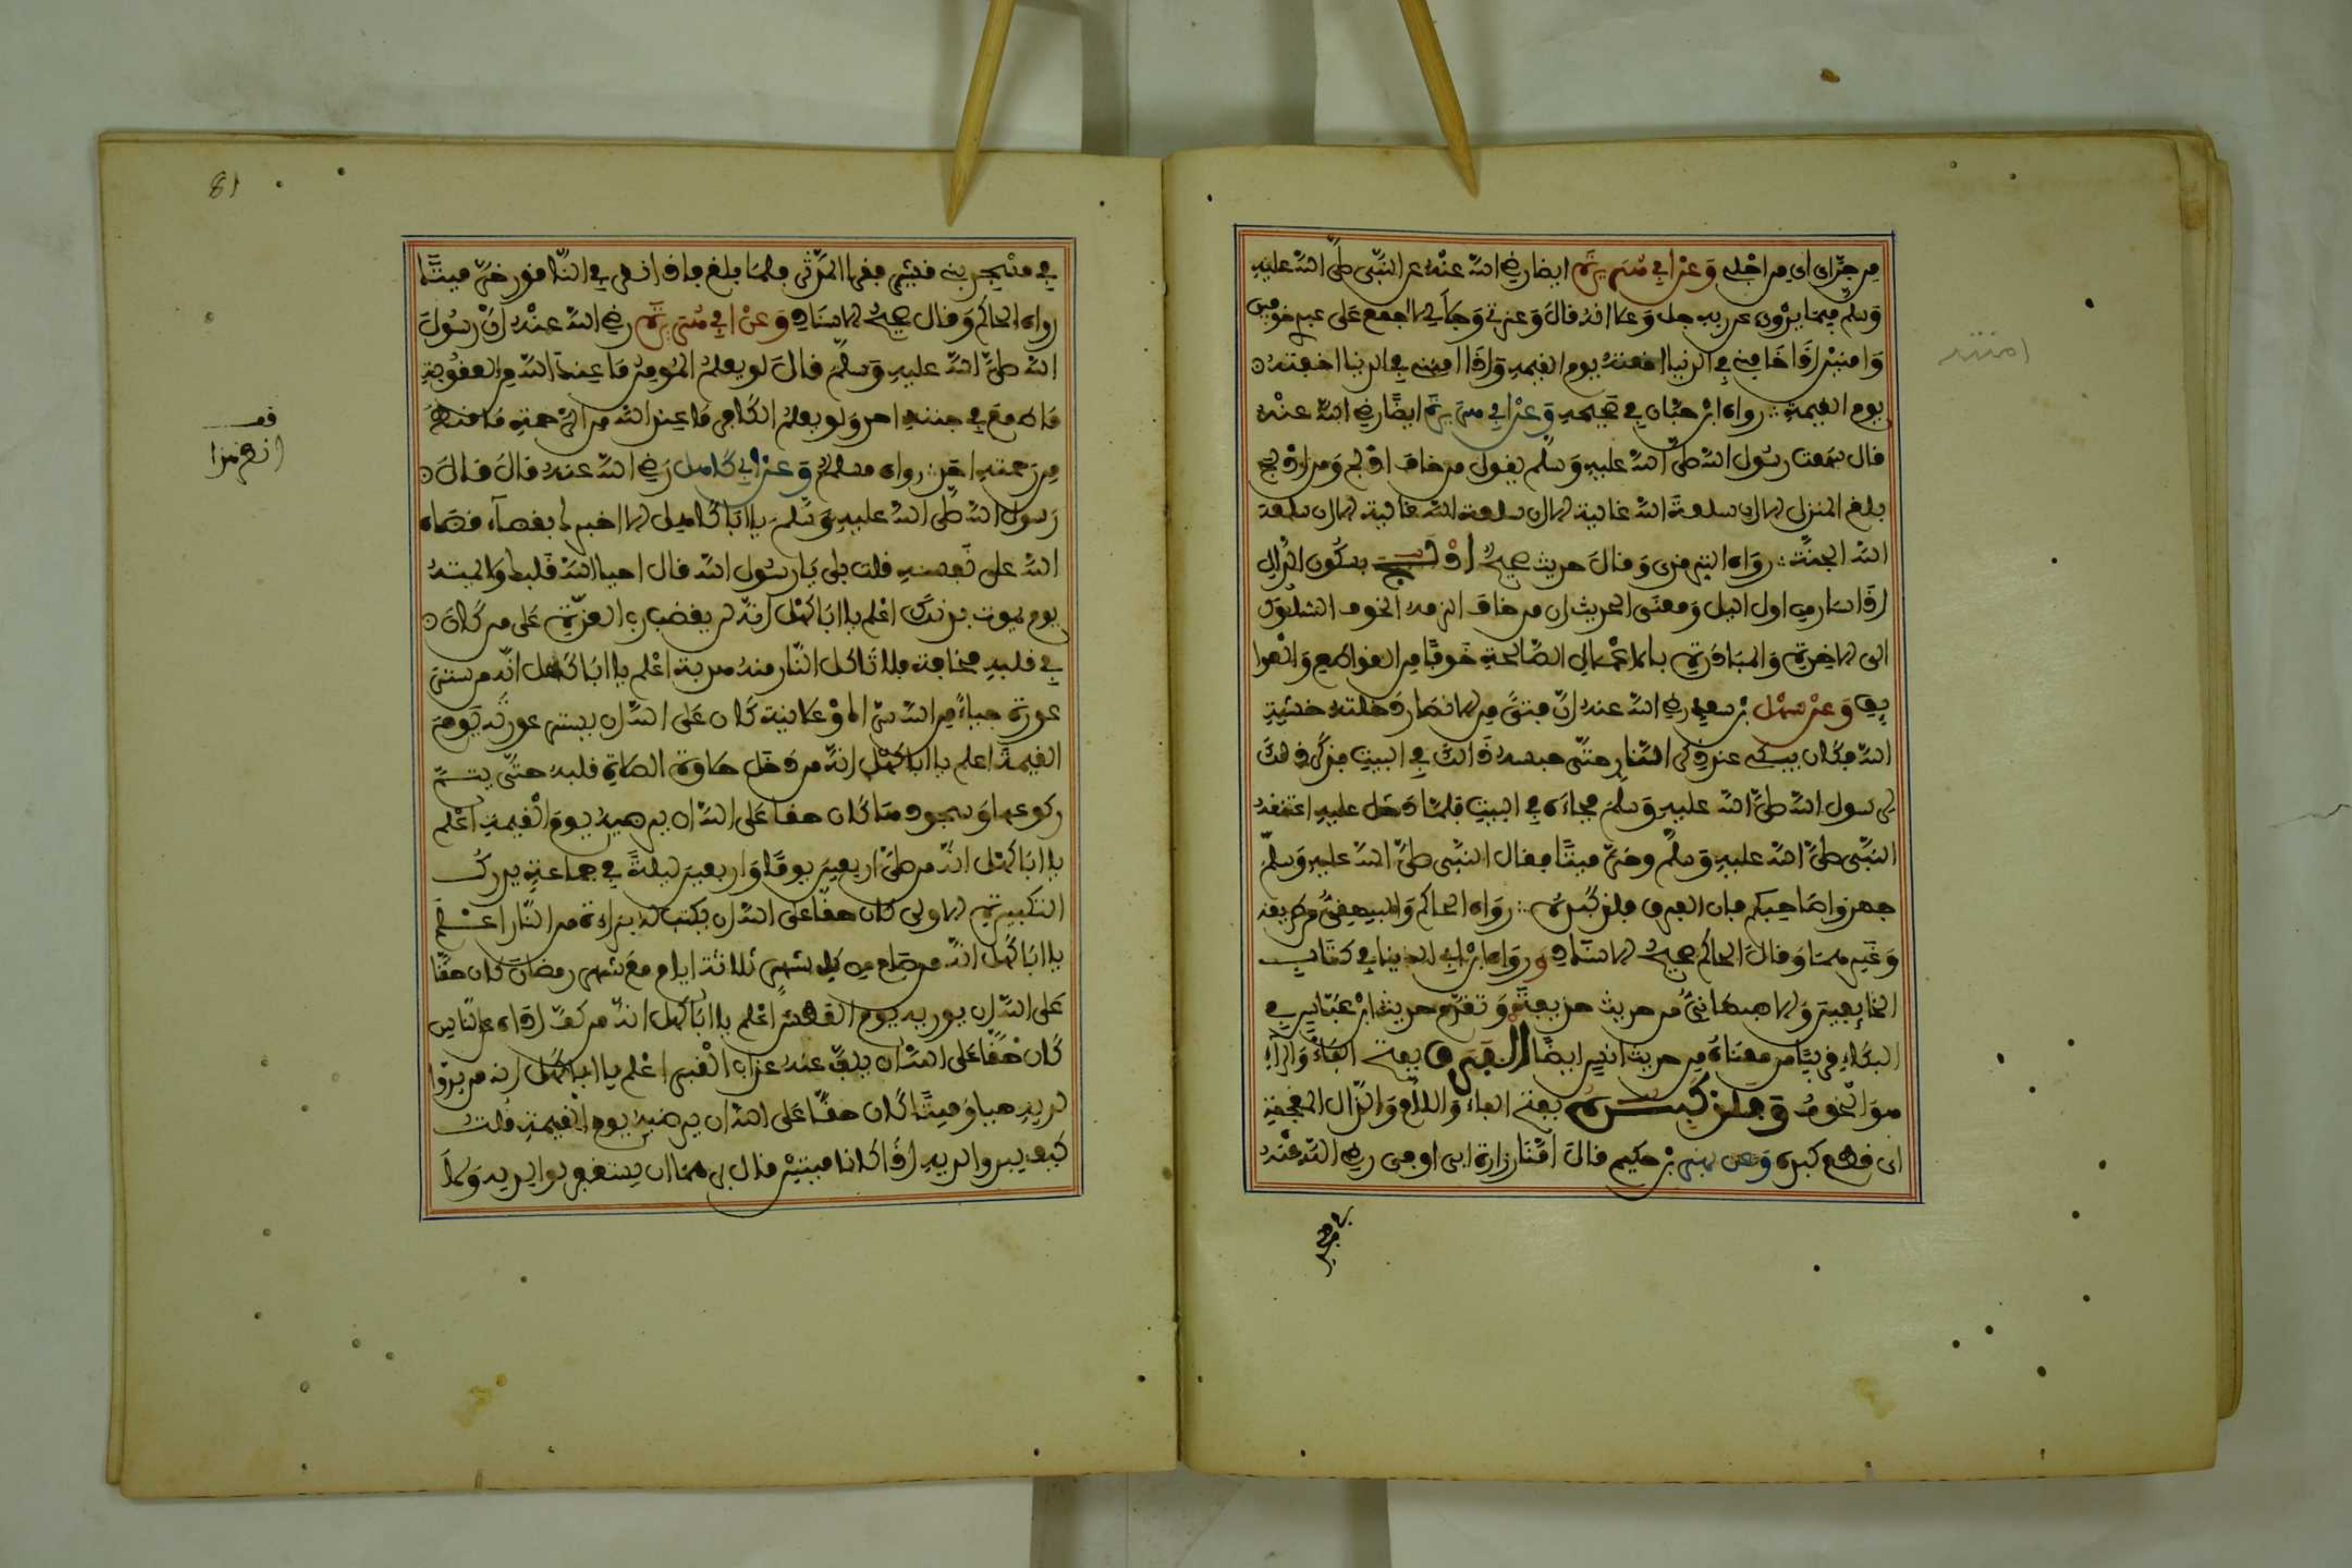 من جراى اى من اجلى وعن ابي هريرة ايضا رضي الله عنه عن النبي صلى الله عليه
وسلم فيما يروى عن ربه جل وعلا انه قال وعزتي وجلالي لا اجمع على عبدي خوفين
وامنين اذا خافني في الدنيا امنته يوم القيمة واذا امنني في الدنيا اخفته
يوم القيمة رواه ابن حبان في صحيحه وعن ابي هريرة ايضا رضي الله عنه
قال سمعت رسول الله صلى الله عليه وسلم يقول من خاف ادلج ومن ادلج
بلغ المنزل الا ان سلعة الله غالية الا ان سلعة الله غالية الا ان سلعة
الله الجنة رواه الترمذى وقال حديث صحيح ادلج بسكون الدال
اذا سار من اول اليل ومعنى الحديث ان من خاف الزمه الخوف السلوك
الى الاخرة والمبادرة بالاعمال الصالحة خوفا من القواطع والعوا
يق وعن سهل بن سعد رضي الله عنه ان فتى من الانصار دخلته خشية
الله فكان يبكي عند ذكر النار حتى حبسه ذالك في البيت فذكر ذلك
لرسول الله صلى الله عليه وسلم فجاءه في البيت فلما دخل عليه اعتنقه
النبي صلى الله عليه وسلم وخر ميتا فقال النبي صلى الله عليه وسلم
جهزوا صاحبكم فان الفرق فلذ كبده رواه الحاكم والبيهقي من طريقه
وغيرهما وقال الحاكم صحيح الاسناد ورواه ابن ابي الدنيا في كتاب
الخايفين والاصبهاني من حديث حذيفة وتقدم حديث ابن عباس في
البكاء قريبا من معناه من حديث انس ايضا الفرق بفتح الفاء والراء
هو الخوف وفلذ كبده بفتح الفاء واللام والذال المعجمة
اى قطع كبده وعن بهز بن حكيم قال امنا زرارة ابن اوفى رضي الله عنه
في مسجد
81
في مسجد بني قشير فقرا المدثر فلما بلغ فاذا نقر في الناقور خر ميتا
رواه الحاكم وقال صحيح الاسناد وعن ابي هريرة رضي الله عنه ان رسول
الله صلى الله عليه وسلم قال لو يعلم المومن ما عند الله من العقوبة
ما طمع في جنته احد ولو يعلم الكافر ما عند الله من الرحمة ما قنط
من رحمته احد رواه مسلم وعن ابي كاهل رضي الله عنه قال قال
رسول الله صلى الله عليه وسلم يا ابا كاهل الا اخبرك بقضاء قضاه
الله على نفسه قلت بلى يا رسول الله قال احيا الله قلبك ولا يمته
يوم يموت بدنك اعلم يا ابا كاهل انه لن يغضب رب العزة على من كان
في قلبه مخافة ولا تاكل النار منه هدبة اعلم يا ابا كاهل انه من ستر
عورة حياء من الله سرا او علانية كان على الله ان يستر عورته يوم
القيمة اعلم يا ابا كاهل انه من دخل حلاوة الصلاة قلبه حتى يتم
ركوعها وسجودها كان حقا على الله ان يرضيه يوم القيمة اعلم
يا ابا كاهل انه من صلى اربعين يوما واربعين ليلة في جماعة يدرك
التكبيرة الاولى كان حقا على الله ان يكتب له براءة من النار اعلم
يا ابا كاهل انه من صام من كل شهر ثلاثة ايام مع شهر رمضان كان حقا
على الله ان يرويه يوم العطش اعلم يا ابا كاهل انه من كف اذاه عن الناس
كان حقا على الله ان يكف عنه عذاب القبر اعلم يا ابا كاهل انه من بر وا
لديه حيا وميتا كان حقا على الله ان يرضيه يوم القيمة قلت
كيف يبر والديه اذا كانا ميتين قال برهما ان يستغفر لوالديه ولا